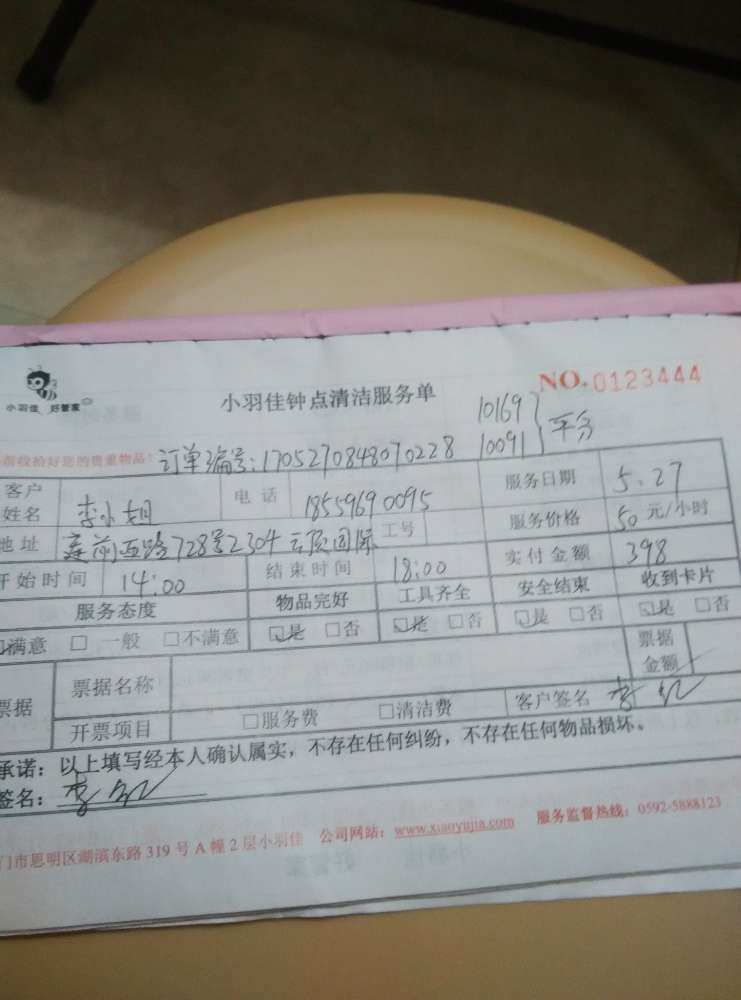 小羽佳 好管家
小羽佳钟点清洁服务单
NO. 0123444
10169
10091
平分
前收拾好您的贵重物品!
订单编号:1705270848070228
客户姓名 李小姐 电话 18559690095 服务日期 5.27
地址 西路728号2304 国际 工号 服务价格 50 元/小时
开始时间 14:00 结束时间 18:00 实付金额 398
服务态度 物品完好 工具齐全 安全结束 收到卡片
☑满意 □一般 □不满意 ☑是 □否 ☑是 □否 ☑是 □否 ☑是 □否
票据 票据名称 票据金额
开票项目 □服务费 □清洁费 客户签名 李
承诺:以上填写经本人确认属实,不存在任何纠纷,不存在任何物品损坏。
签名:李
门市思明区湖滨东路 319 号 A 幢 2 层小羽佳 公司网站:www.xiaoyujia.com 服务监督热线:0592-5888123